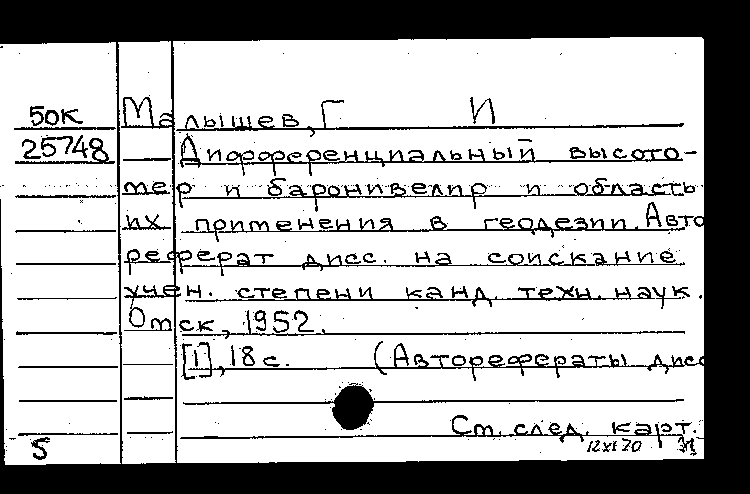 50К Малышев, Г И
25748 Дифференциальный высото-
мер и баронивелир и область
их применения в геодезии. Авто
реферат дисс. на соискание
учен. степени канд. техн. наук.
Омск, 1952.
[1], 18 с. (Авторефераты дисс
См. след. карт.
5 12 XI 70